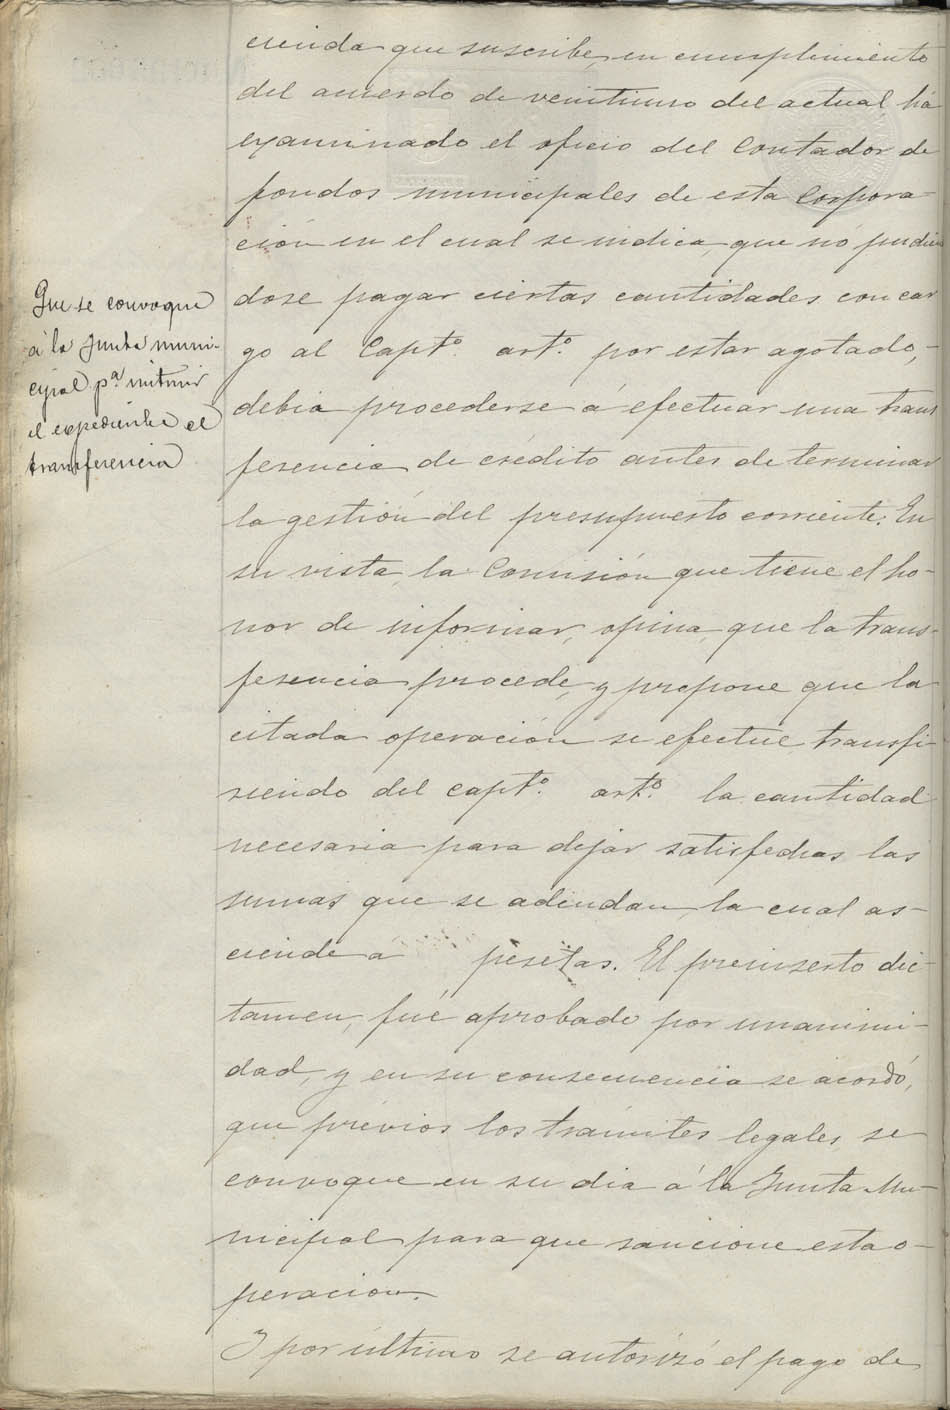 cienda que suscribe, en cumplimiento
del acuerdo de veintiuno del actual, há
examinado el oficio del Contador de
fondos municipales de esta Corpora-
ción en el cual se indica, que nó pudién
dose pagar ciertas cantidades con car
go al Capt.º art.º por estar agotado,
debia procederse á efectuar una trans
ferencia de crédito antes de terminar
la gestión del presupuesto corriente. En
su vista, la Comisión que tiene el ho-
nor de informar, opina, que la trans-
ferencia procede, y propone que la
citada operación se efectúe transfi-
riendo del capt.º art.º la cantidad
necesaria para dejar satisfechas las
sumas que se adeudan, la cual as-
ciende a pesetas. El preinserto dic-
tamen, fué aprobado por unanimi-
dad, y en su consecuencia se acordó,
que prévios los trámites legales, se
convoque en su dia á la Junta Mu-
nicipal para que sancione esta o-
peración.
Y por último se autorizó el pago de
Que se convoque
á la Junta muni-
cipal p.ª
el expediente
transferencia